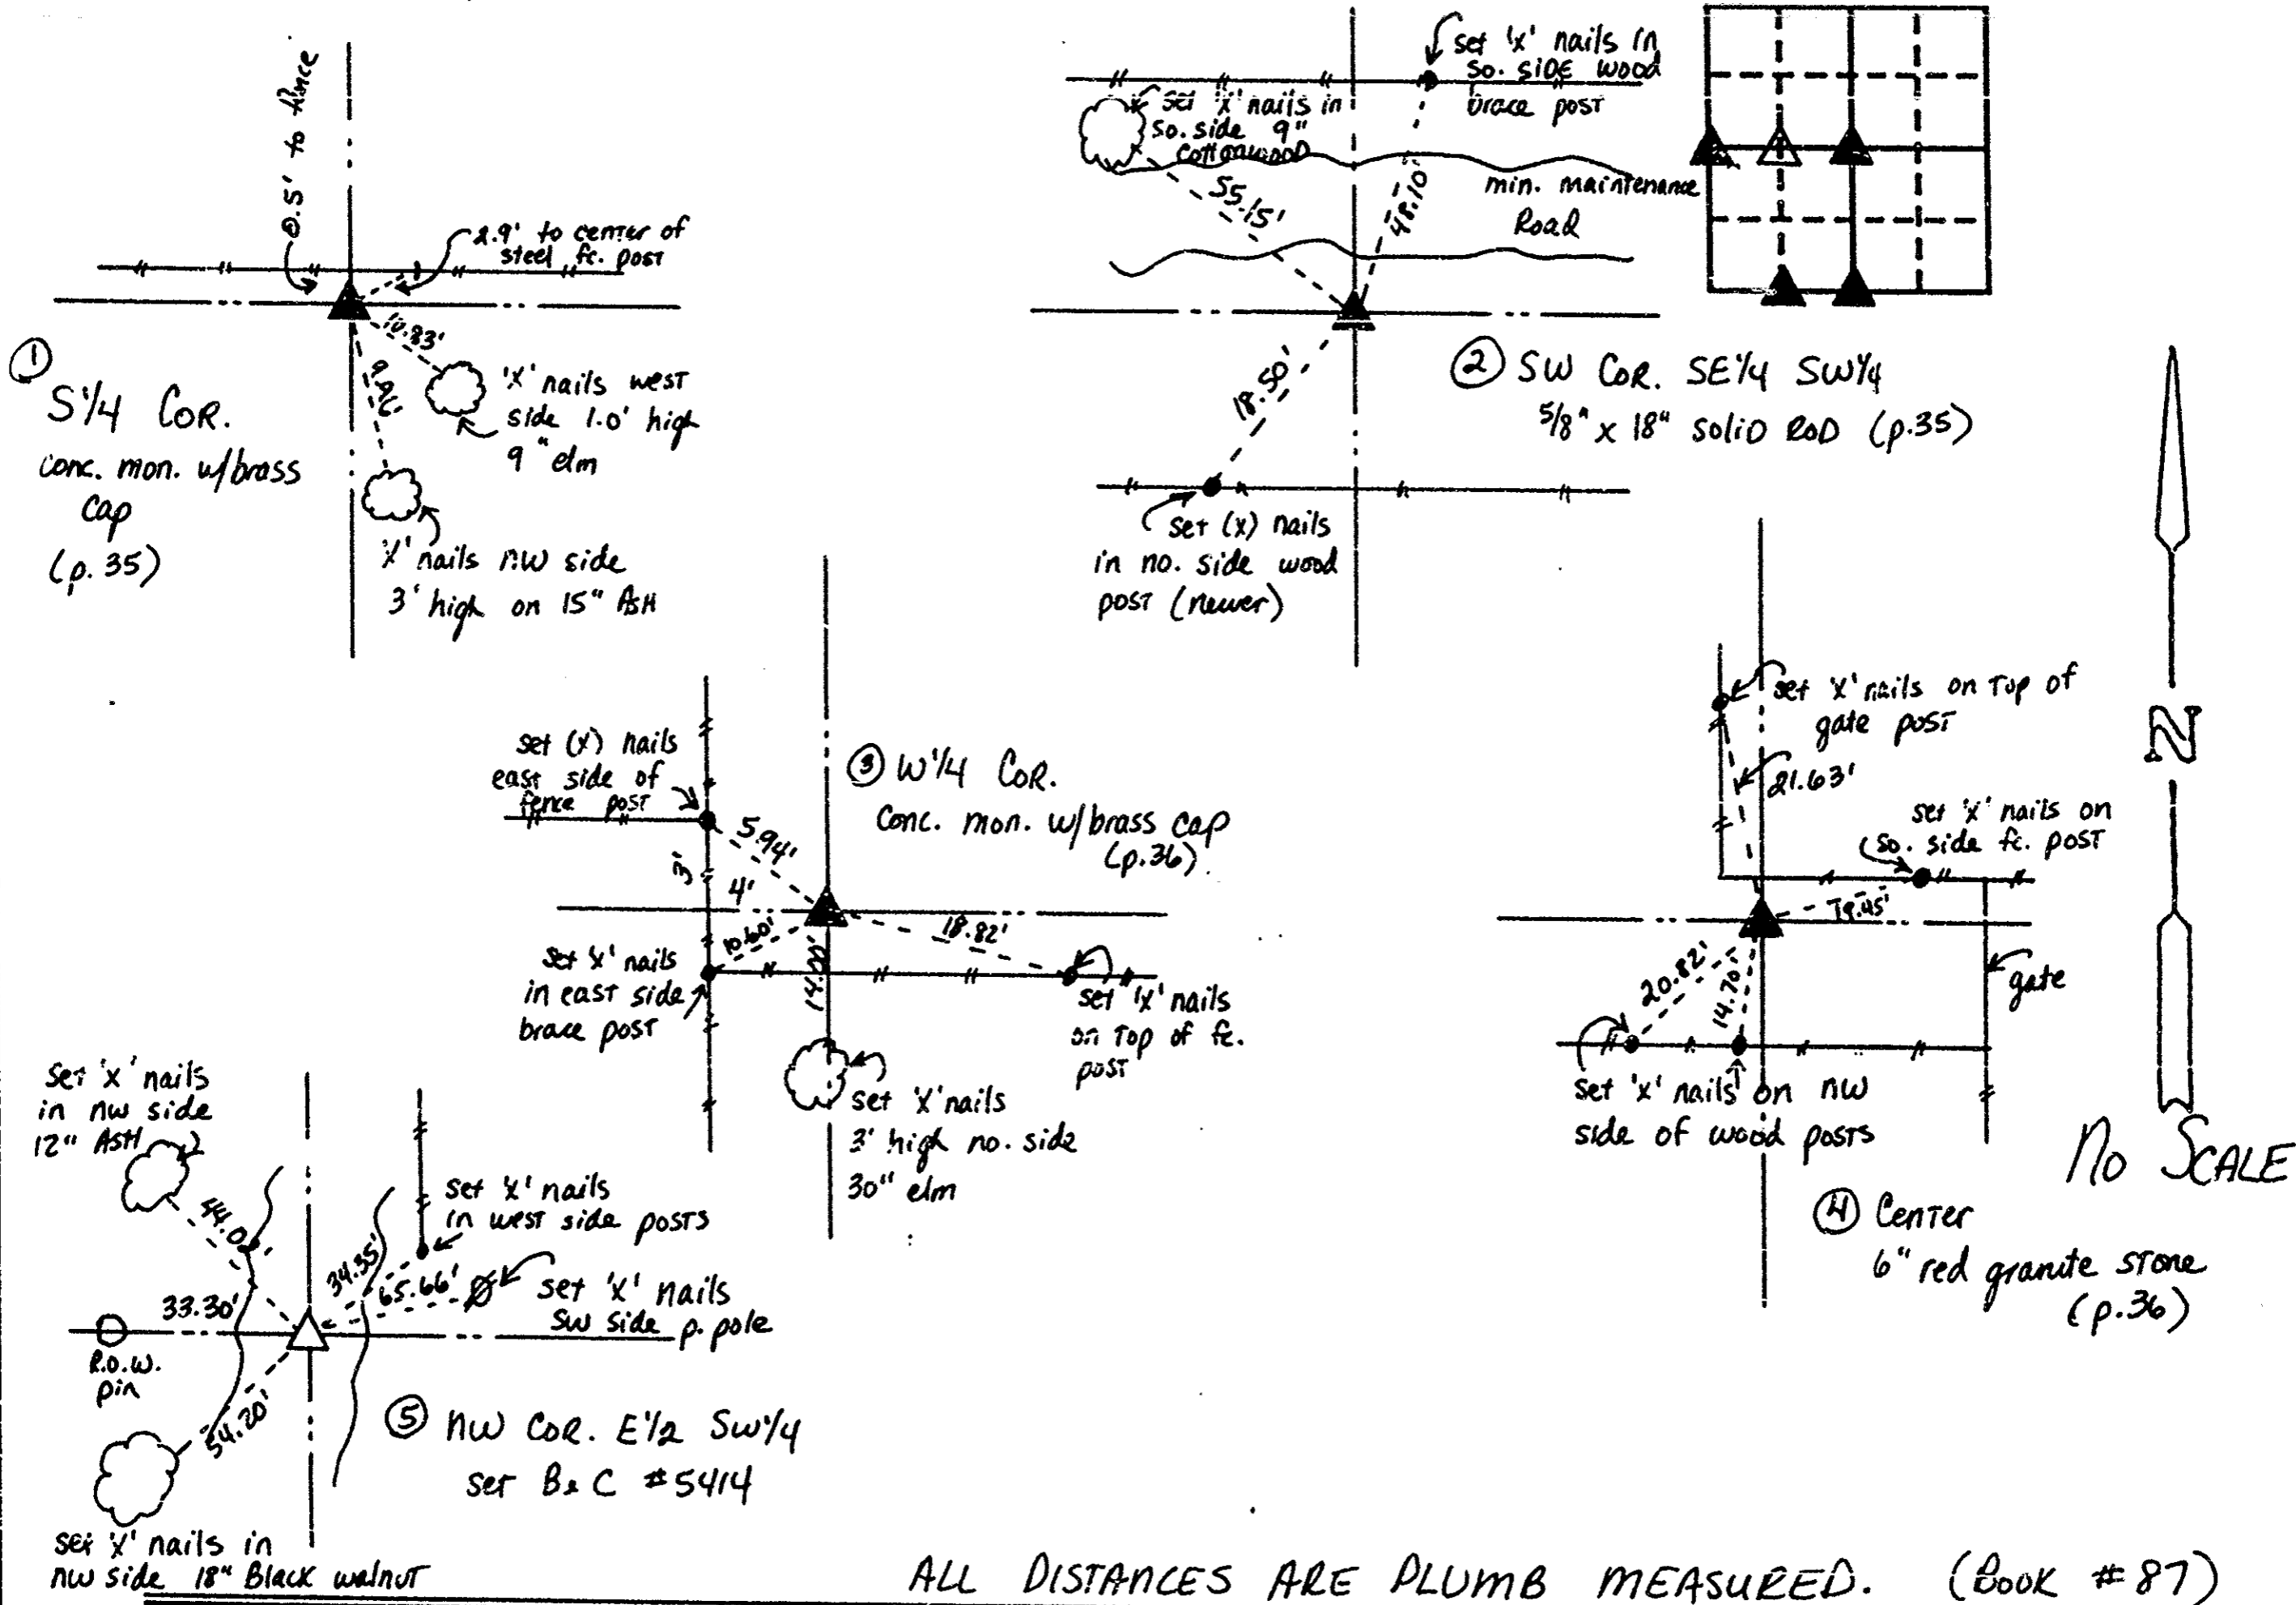 0.5' to fence
2.9' to center of
steel fc. post
10.83'
9.96'
①
S1/4 COR.
conc. mon. w/brass
cap
(p. 35)
'X' nails west
side 1.0' high
9" elm
'X' nails NW side
3' high on 15" ASH
set 'x' nails in
so. SIDE wood
brace post
set 'X' nails in
so. side 9"
Cottonwood
55.15'
48.10'
min. maintenance
Road
18.50'
② SW COR. SE1/4 SW1/4
5/8" x 18" SOLID ROD (p.35)
set (x) nails
in no. side wood
post (newer)
set (x) nails
east side of
fence post
5.94'
3'
4'
10.60'
14.00'
18.82'
③ W1/4 COR.
Conc. mon. w/brass cap
(p.36)
set 'x' nails
in east side
brace post
set 'x' nails
on Top of fc.
post
set 'X' nails
3' high no. side
30" elm
set 'x' nails on Top of
gate post
21.63'
set 'x' nails on
so. side fc. post
19.45'
20.82'
14.70'
gate
set 'x' nails on NW
side of wood posts
④ Center
6" red granite stone
(p.36)
N
NO SCALE
set 'x' nails
in NW side
12" ASH
33.30'
R.O.W.
pin
34.35'
65.66'
54.20'
set 'x' nails
in west side posts
set 'x' nails
SW side p. pole
⑤ NW COR. E1/2 SW1/4
set B & C #5414
set 'x' nails in
NW side 18" Black walnut
ALL DISTANCES ARE PLUMB MEASURED. (BOOK #87)